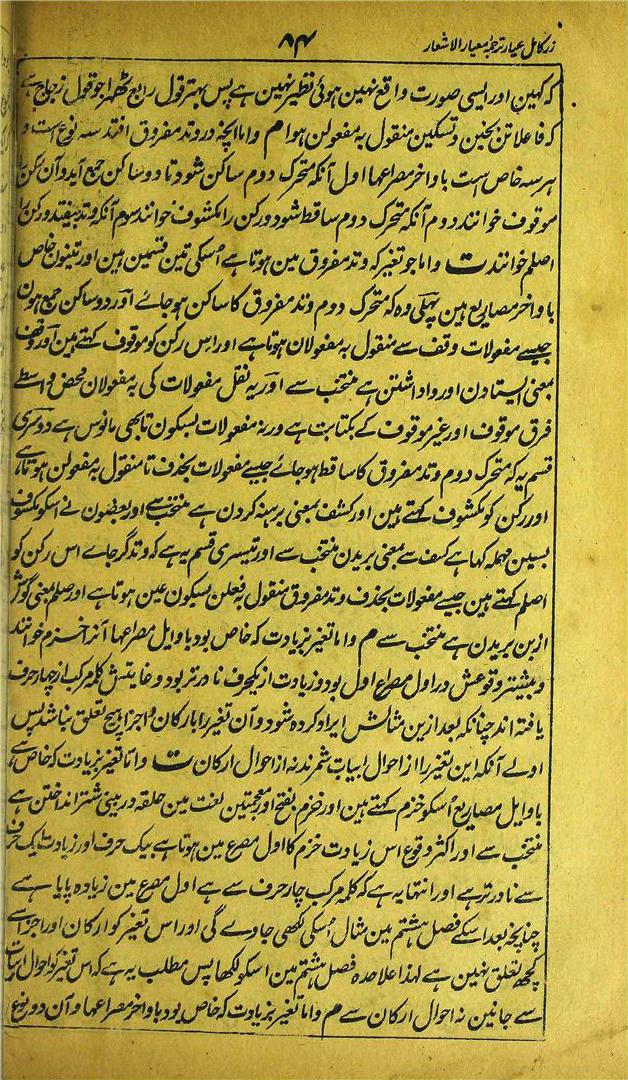 زر کامل عیار ترجمہ معیار الاشعار
۸۴
کہ کہین اور ایسی صورت واقع نہین ہوئی نظیر نہین ہے پس بہتر قول رابع ٹھہرا جو قول زجاج ہے
کہ فاعلاتن بخبن و تسکین منقول بہ مفعولن ہوا م و اما آنچہ در وتد مفروق افتد سہ نوع است و
ہر سہ خاص است باواخر مصراعہا اول آنکہ متحرک دوم ساکن شود تا دو ساکن جمع آید و آن رکن را
موقوف خوانند دوم آنکہ متحرک دوم ساقط شود و رکن را مکشوف خوانند سوم آنکہ وتد بیفتد و رکن را
اصلم خوانند ت و اما جو تغیر کہ وتد مفروق مین ہوتا ہے اُسکی تین قسمین ہین اور تینون خاص
باواخر مصاریع ہین پہلی وہ کہ متحرک دوم وتد مفروق کا ساکن ہو جائے اور دو ساکن جمع ہون
جیسے مفعولات وقف سے منقول بہ مفعولان ہوتا ہے اور اس رکن کو موقوف کہتے ہین اور وقف
بمعنی ایستادن اور واداشتن ہے منتخب سے اور یہ نقل مفعولات کی بہ مفعولان محض واسطے
فرق موقوف اور غیر موقوف کے بکتابت ہے ورنہ مفعولات بسکون تا بھی مانوس ہے دوسری
قسم یہ کہ متحرک دوم وتد مفروق کا ساقط ہو جائے جیسے مفعولات بحذف تا منقول بہ مفعولن ہوتا ہے
اور رکن کو مکشوف کہتے ہین اور کشف بمعنی برہنہ کردن ہے منتخب سے اور بعضون نے اسکو مکسوف
بسین مہملہ کہا ہے کسف سے بمعنی بریدن منتخب سے اور تیسری قسم یہ ہے کہ وتد گر جاے اس رکن کو
اصلم کہتے ہین جیسے مفعولات بحذف وتد مفروق منقول بہ فعلن بسکون عین ہوتا ہے اور صلم بمعنی گوش
از بن بریدن ہے منتخب سے م و اما تغیر بزیادت کہ خاص بود باوایل مصراعہا آنرا خزم خوانند
و بیشتر وقوعش در اول مصراع اول بود و زیادت از یکحرف نادر تر بود و غایتش کلمہ مرکب از چہار حرف
یافتہ اند چنانکہ بعد ازین مثالش ایراد کردہ شود و آن تغیر را بارکان و اجزا ہیچ تعلق نباشد پس
اولے آنکہ این تغیر را از احوال ابیات شمرند نہ از احوال ارکان ت و اما تغیر بزیادت کہ خاص ہے
باوایل مصاریع اُسکو خزم کہتے ہین اور خزم بفتح اور معجمتین لغت مین حلقہ در بینی شتر انداختن ہے
منتخب سے اور اکثر وقوع اس زیادت خزم کا اول مصرع مین ہوتا ہے بیک حرف اور زیادت ایک حرف
سے نادر تر ہے اور انتہا یہ ہے کہ کلمہ مرکب چار حرف سے ہے اول مصرع مین زیادہ پایا ہے
چنانچہ بعد اسکے فصل ہشتم مین مثال اُسکی لکھی جاوے گی اور اس تغیر کو ارکان اور اجزا سے
کچھ تعلق نہین ہے لہذا علاحدہ فصل ہشتم مین اسکو لکھا پس مطلب یہ ہے کہ اس تغیر کو احوال ابیات
سے جانین نہ احوال ارکان سے م و اما تغیر بزیادت کہ خاص بود باواخر مصراعہا و آن دو نوع